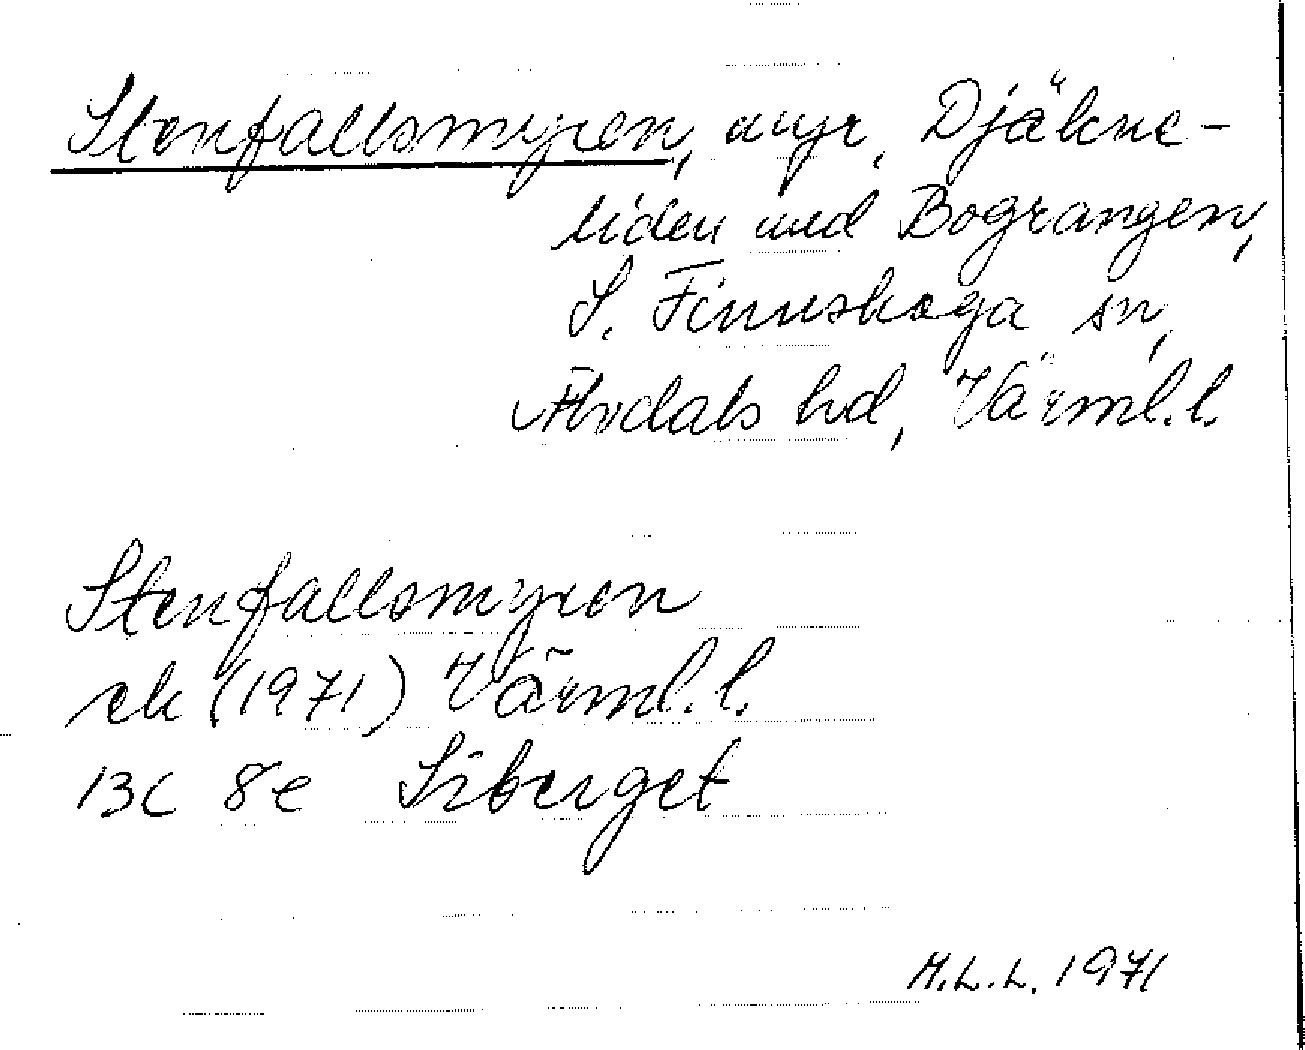 Stenfallsmyren, myr, Djäkne-
liden vid Bograngen,
S. Finnskoga sn,
Älvdals hd, Värml.l.
Stenfallsmyren
ek (1971) Värml.l.
13C 8e Irberget
M.L.L. 1971